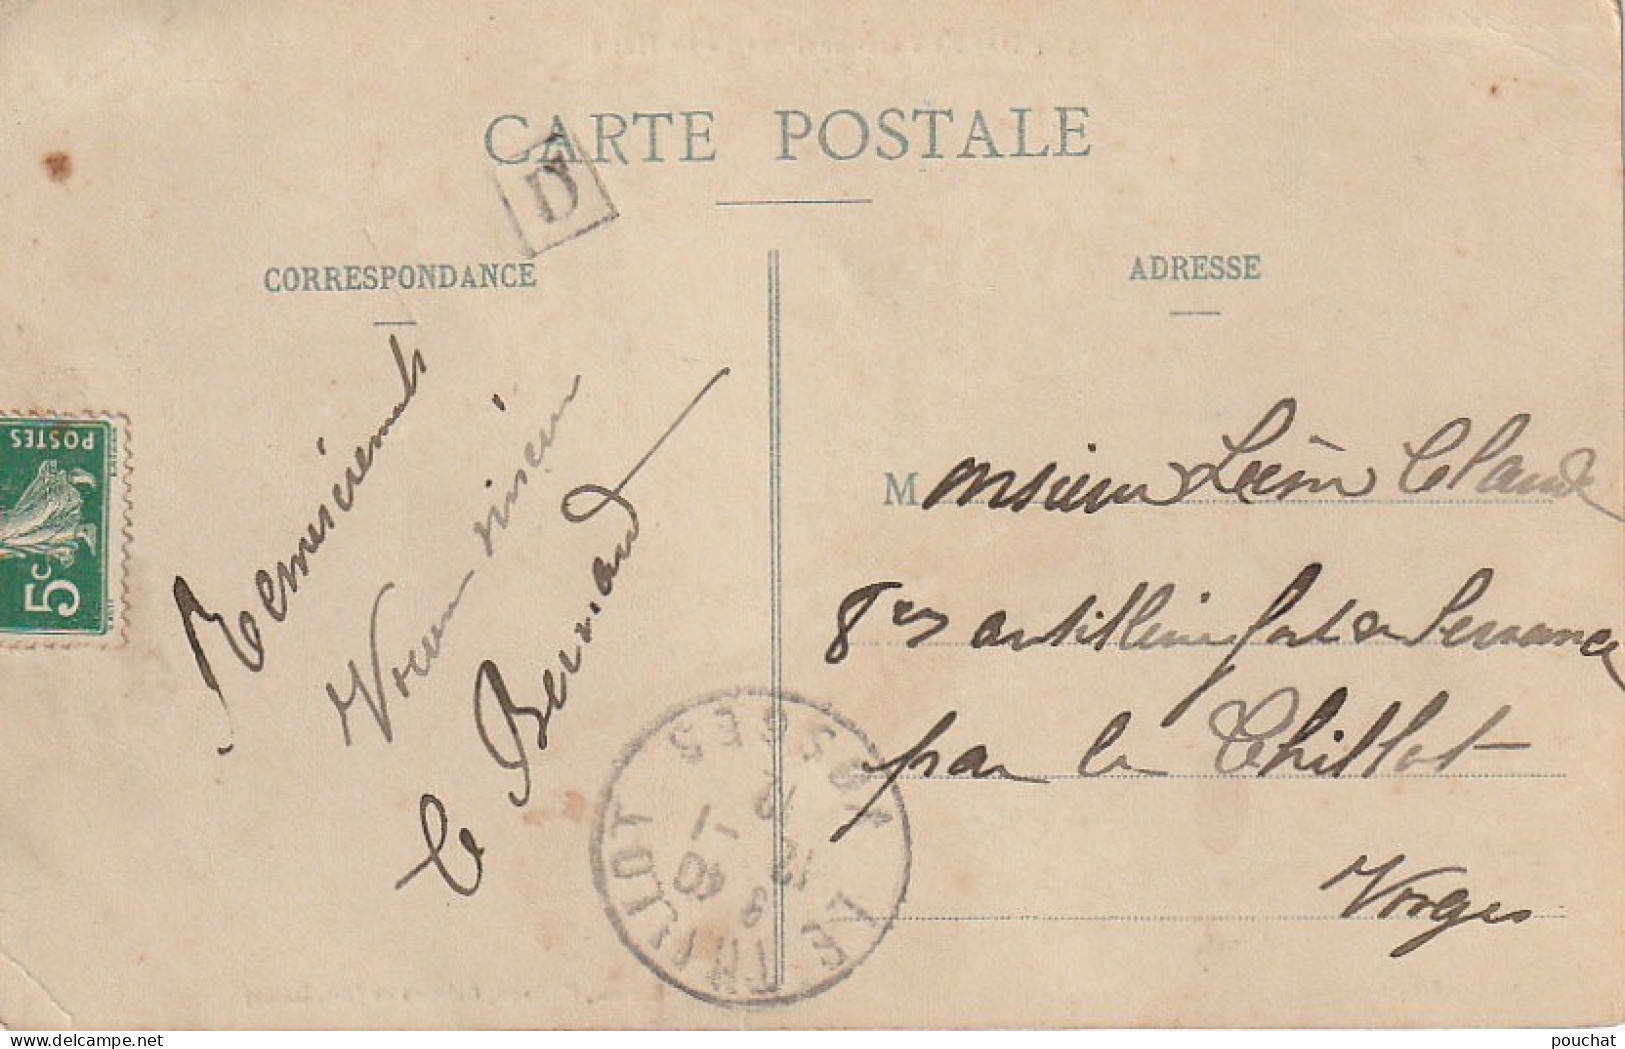 CARTE POSTALE
D
CORRESPONDANCE
ADRESSE
POSTES
5c
Remerciements
C Bernard
Monsieur Léon Claude
8em artillerie fort de Servance
par le Thillot
Vosges
LE THILLOT
VOSGES
12
pouchat
delcampe.net